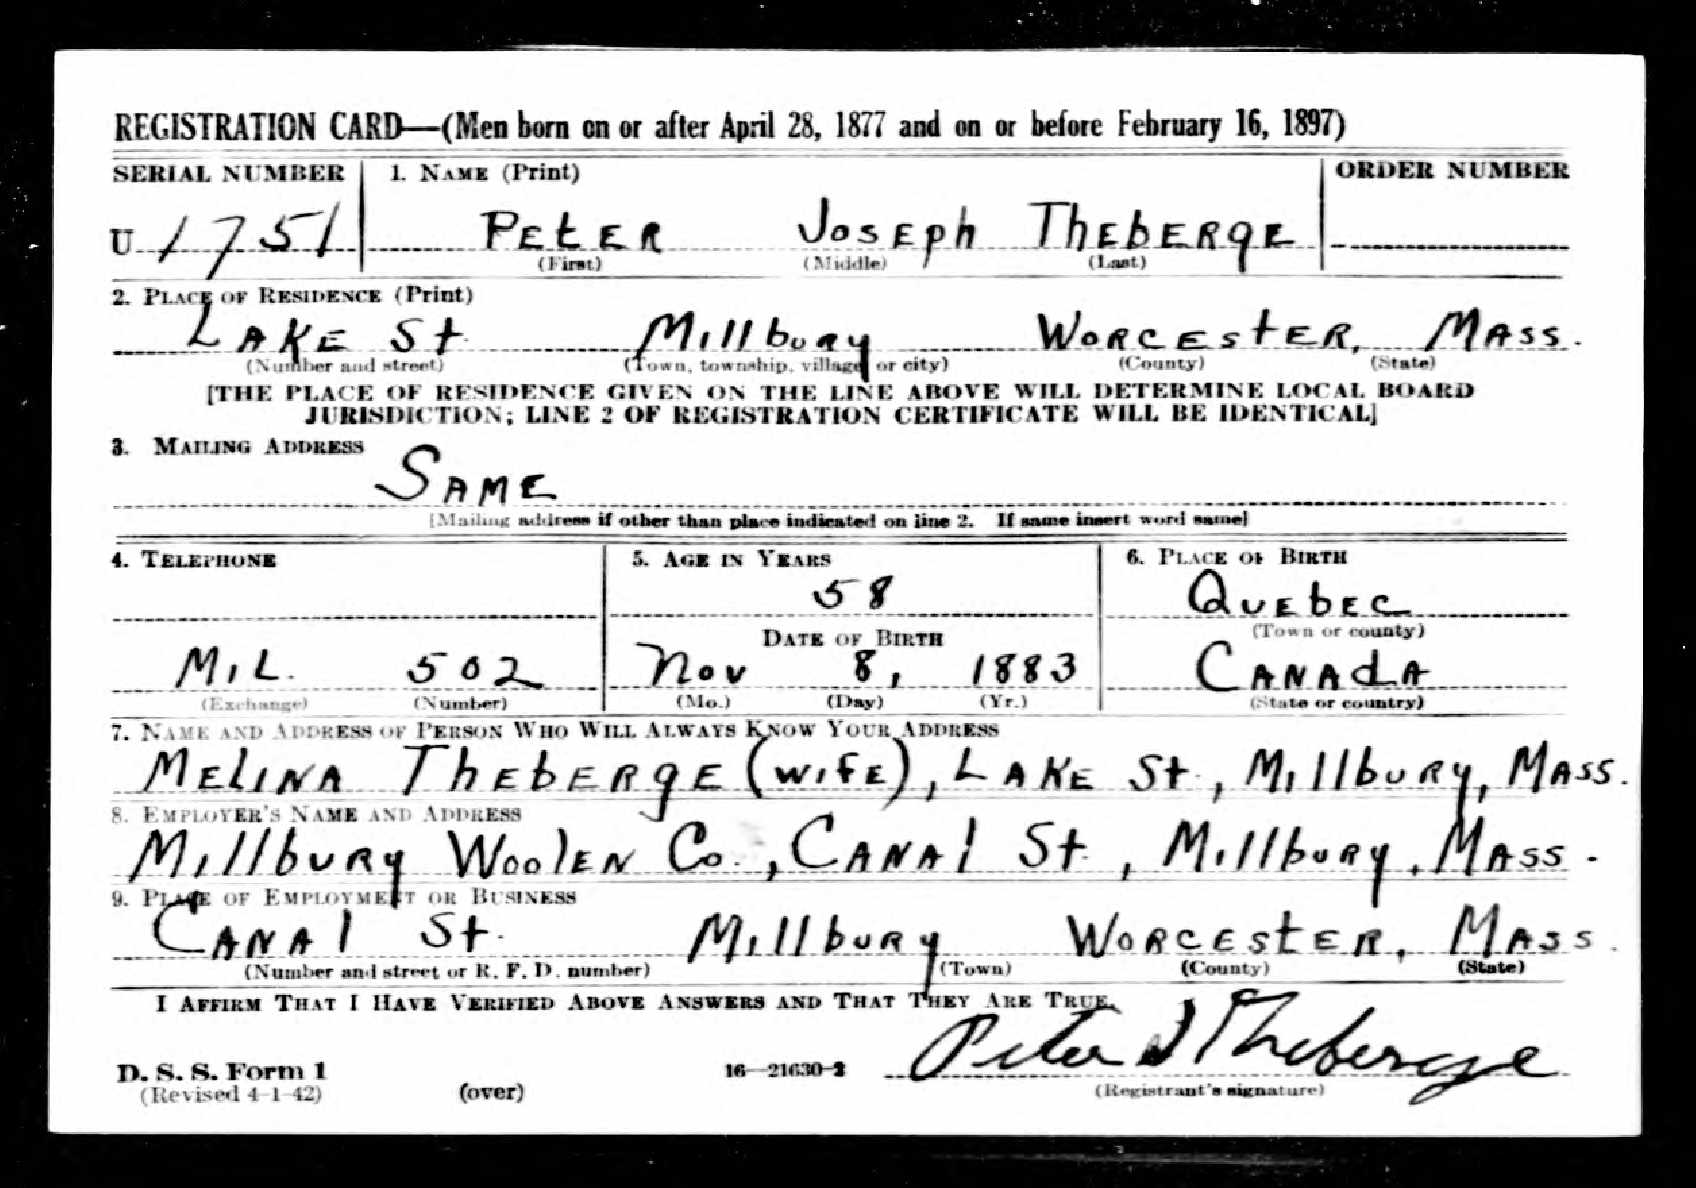 REGISTRATION CARD—(Men born on or after April 28, 1877 and on or before February 16, 1897)
SERIAL NUMBER 1. NAME (Print) ORDER NUMBER
U 1751 PETER JOSEPH THEBERGE
(First) (Middle) (Last)
2. PLACE OF RESIDENCE (Print)
LAKE St. Millbury WORCESTER, MASS.
(Number and street) (Town, township, village or city) (County) (State)
[THE PLACE OF RESIDENCE GIVEN ON THE LINE ABOVE WILL DETERMINE LOCAL BOARD
JURISDICTION; LINE 2 OF REGISTRATION CERTIFICATE WILL BE IDENTICAL]
3. MAILING ADDRESS
SAME
[Mailing address if other than place indicated on line 2. If same insert word same]
4. TELEPHONE 5. AGE IN YEARS 6. PLACE OF BIRTH
58 QUEBEC
DATE OF BIRTH (Town or county)
MIL. 502 Nov 8, 1883 CANADA
(Exchange) (Number) (Mo.) (Day) (Yr.) (State or country)
7. NAME AND ADDRESS OF PERSON WHO WILL ALWAYS KNOW YOUR ADDRESS
MELINA THEBERGE (WIFE), LAKE St., Millbury, MASS.
8. EMPLOYER'S NAME AND ADDRESS
Millbury Woolen Co., CANAl St., Millbury, MASS.
9. PLACE OF EMPLOYMENT OR BUSINESS
CANAl St. Millbury WORCESTER, MASS.
(Number and street or R. F. D. number) (Town) (County) (State)
I AFFIRM THAT I HAVE VERIFIED ABOVE ANSWERS AND THAT THEY ARE TRUE.
Peter J Theberge
D. S. S. Form 1 16—21630-2
(Revised 4-1-42) (over) (Registrant's signature)